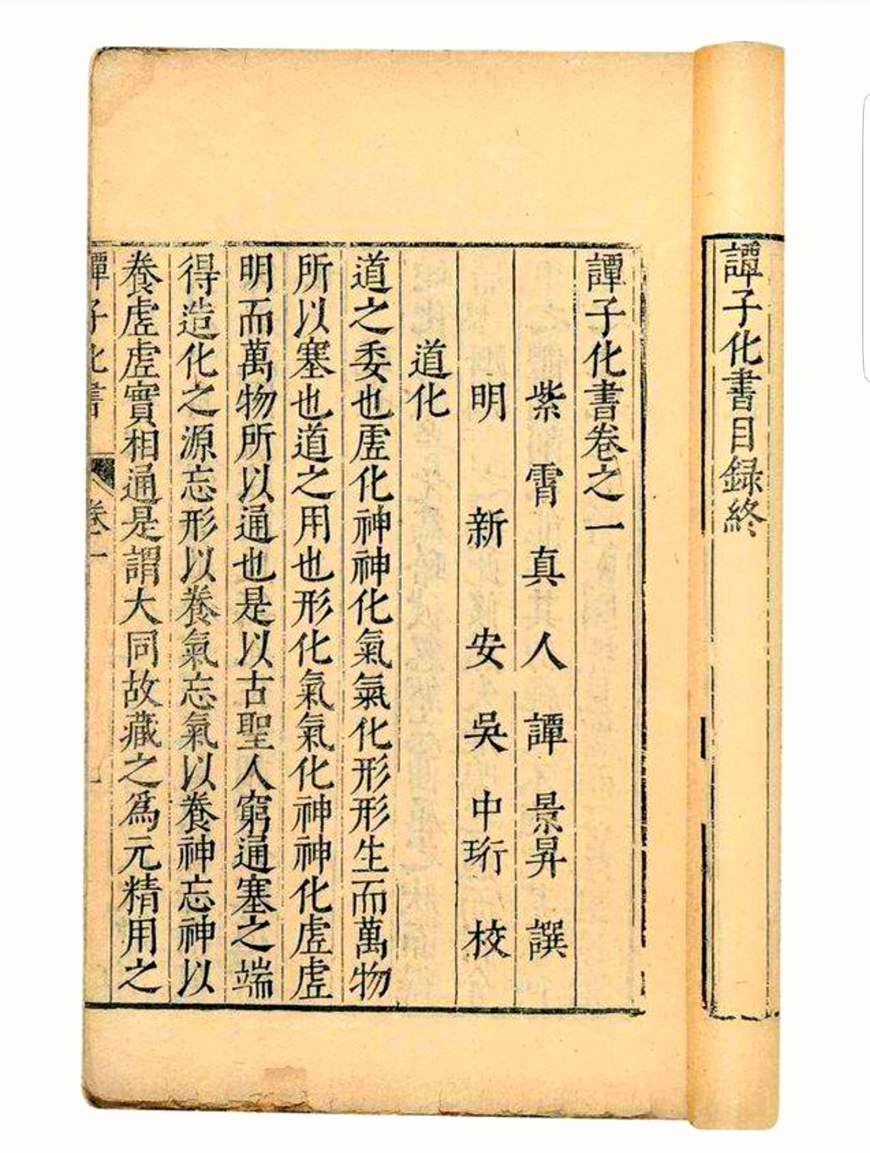 譚子化書目録終
譚子化書卷之一
紫霄真人譚景昇譔
明新安吳中珩校
道化
道之委也虗化神神化氣氣化形形生而萬物
所以塞也道之用也形化氣氣化神神化虗虗
明而萬物所以通也是以古聖人窮通塞之端
得造化之源忘形以養氣忘氣以養神忘神以
養虗虗實相通是謂大同故藏之爲元精用之
譚子化書 卷一